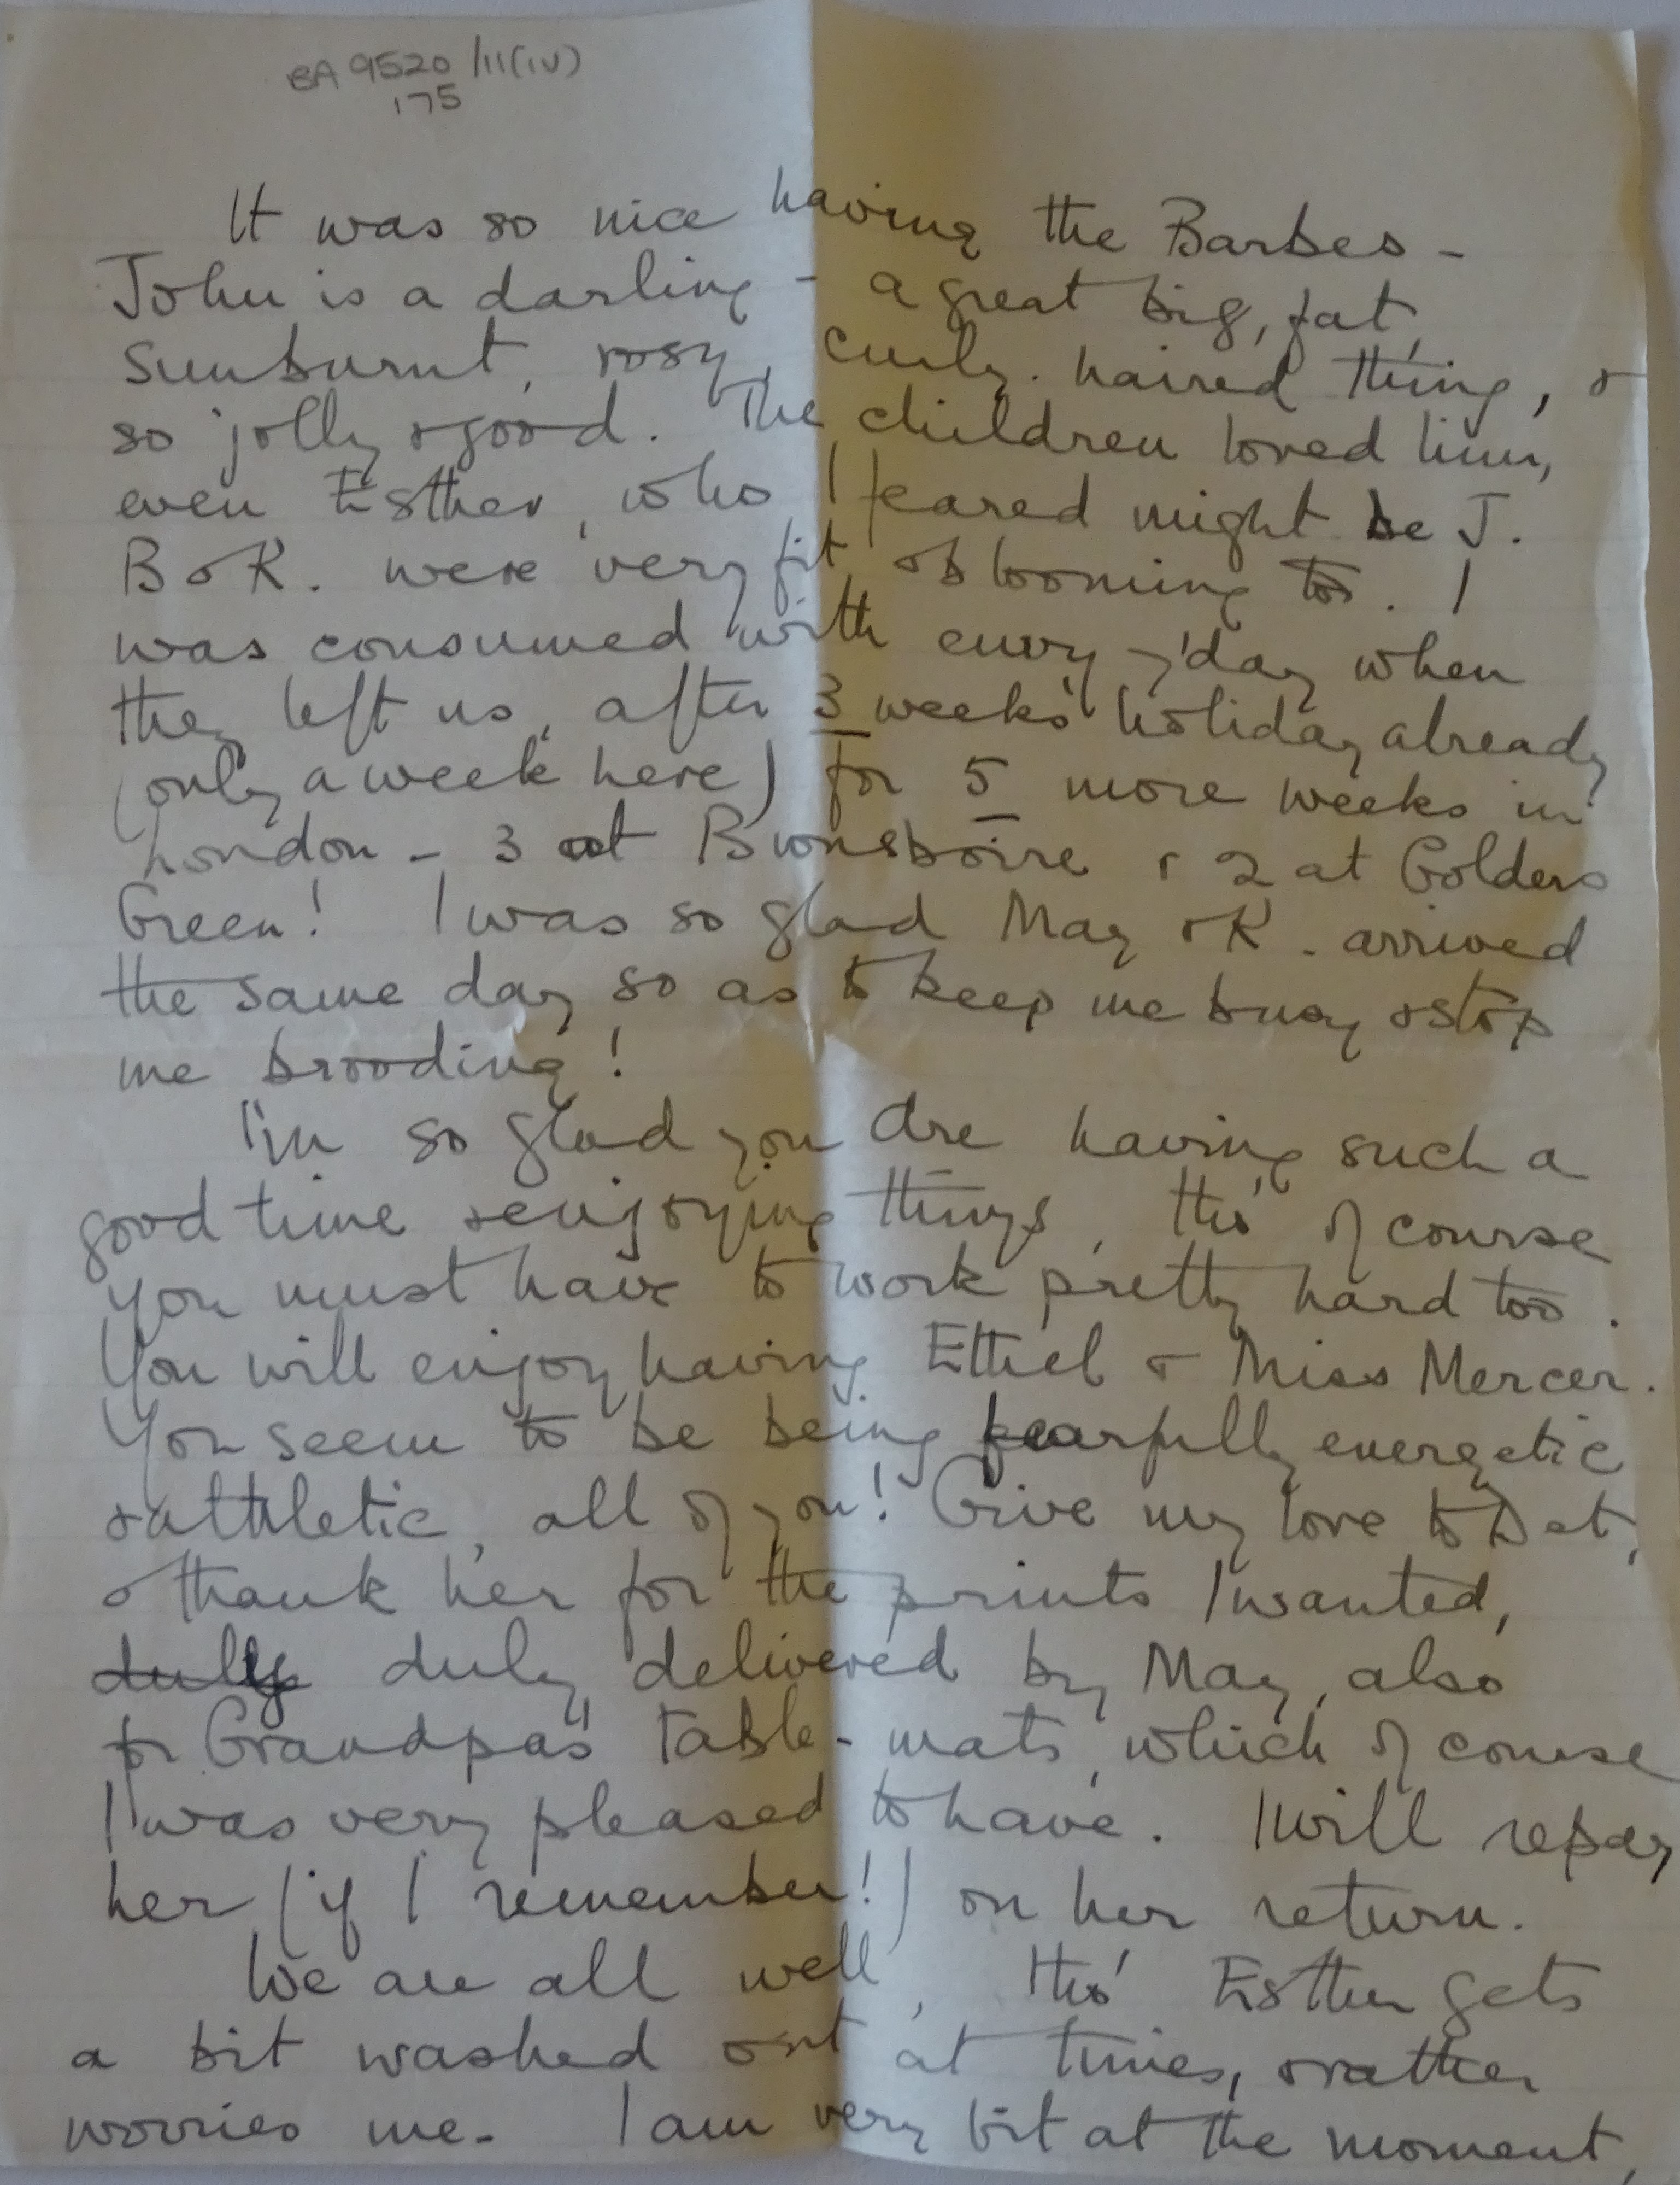 BA 9520/11(iv)
175
It was so nice having the Barbes -
John is a darling - a great big, fat,
sunburnt, rosy, curly-haired thing, &
so jolly & good. The children loved him,
even Esther, who I feared might be J.
B & K. were very fit & blooming too. I
was consumed with envy y'day when
they left us, after 3 weeks' holiday already
(only a week here) for 5 more weeks in
London - 3 at & 2 at Golders
Green! I was so glad May & K. arrived
the same day so as to keep me busy & stop
me brooding!
I'm so glad you are having such a
good time & enjoying things, tho' of course
you must have to work pretty hard too.
You will enjoy having Ethel & Miss Mercer.
You seem to be being fearfully energetic
& athletic, all of you! Give my love to Det,
& thank her for the prints I wanted,
dully duly delivered by May, also
for Grandpa's table-mats, which of course
I was very pleased to have. I will repay
her (if I remember!) on her return.
We are all well, tho' Esther gets
a bit washed out at times, & rather
worries me. I am very bit at the moment,